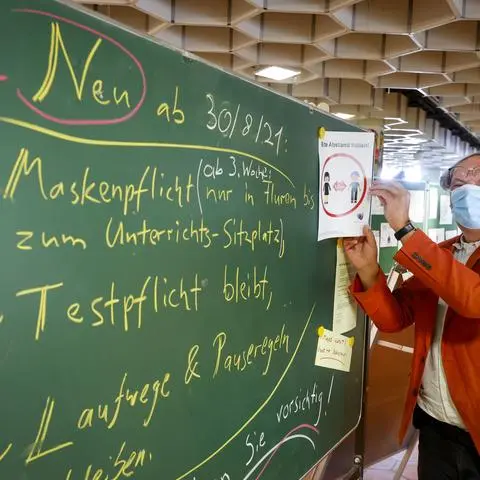 Neu ab 30/8/21:
Maskenpflicht (ab 3. Woche: nur in Fluren bis
zum Unterrichts-Sitzplatz),
Testpflicht bleibt,
Laufwege & Pauseregeln
bleiben.
Sie vorsichtig!
Bitte Abstand